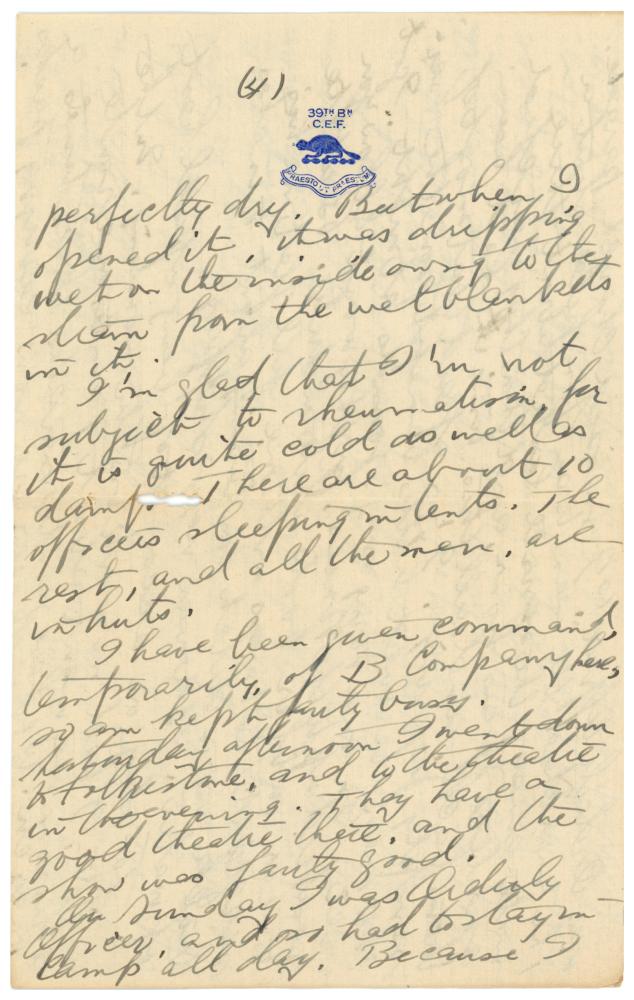 (4)
39TH BN
C.E.F.
PRAESTO UT PRAESTEM
perfectly dry. But when I
opened it, it was dripping
wet on the inside owing to the
steam from the wet blankets
in it.
I'm glad that I'm not
subject to rheumatism, for
it is quite cold as well as
damp. There are about 10
officers sleeping in tents. The
rest, and all the men, are
in huts.
I have been given command,
temporarily, of B Company here,
so am kept fairly busy.
Saturday afternoon I went down
to Folkestone, and to the theatre
in the evening. They have a
good theatre there, and the
show was fairly good.
On Sunday I was Orderly
Officer, and so had to stay in
camp all day. Because I